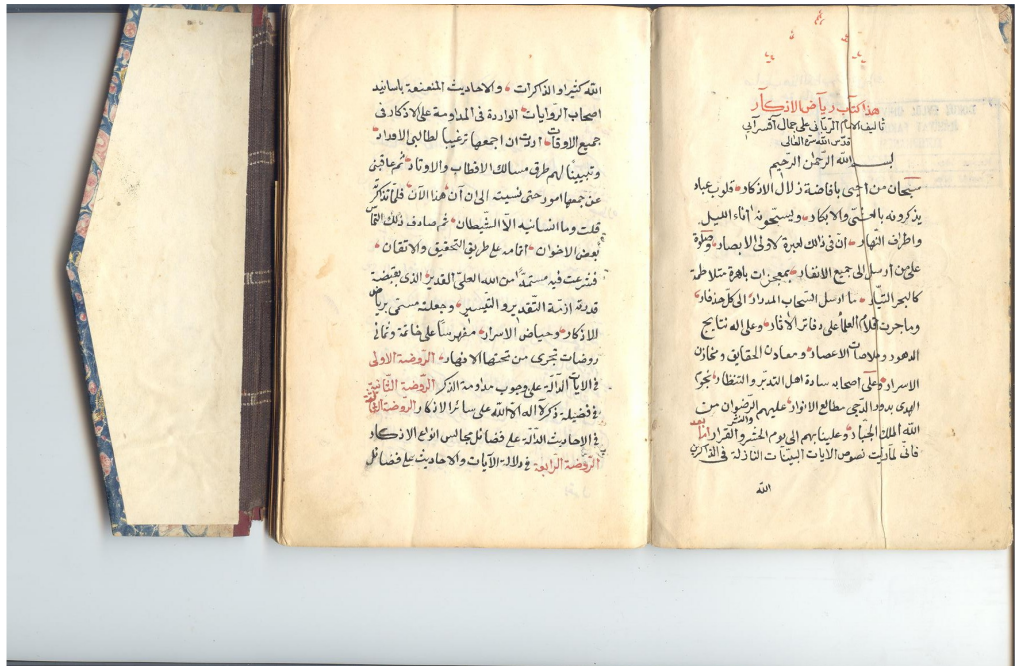 هذا كتاب رياض الاذكار
تاليف الامام الرباني على جمال آقسرايى
قدس الله سره العالى
بسم الله الرحمن الرحيم
سبحان من اجبى بافاضة زلال الاذكار قلوب عباد
يذكرونه بالعشى والابكار ويستحونه اناء الليل
واطراف النهار ان فى ذالك لعبرة لاولى الابصار وصلوة
على من ارسل الى جميع الاقطار بمعجزات باهرة متلاطمة
كالبحر التيار ما ارسل السحاب المدرار الى كل
وما جرت اقلام العلماء على دفاتر الاثار وعلى اله نتايج
الدهور وخلاصات الاعصار ومعادن الحقايق ومخازن
الاسرار وعلى اصحابه سادة اهل التدبر والتنظار نجوم
الهدى بدور الدجى مطالع الانوار عليهم الرضوان من
الله الملك الجبار وعلينا بهم الى يوم الحشر والنشر والقرار اما بعد
فانى لما رايت نصوص الايات البينات النازلة فى الذاكرين
الله
الله كثيرا والذاكرات والاحاديث المنعنعة باسانيد
اصحاب الروايات الواردة فى المداومة على الاذكار فى
جميع الاوقات اردت ان اجمعها ترغيبا لطالبى الاوراد
وتبيينا لهم طرق مسالك الاقطاب والاوتاد ثم عاقنى
عن جمعها امور حتى نسيته الى ان آن هذا الآن فلما تذكر
قلت وما انسانيه الا الشيطان ثم صادف ذلك التماس
بعض الاخوان اتمامه على طريق التحقيق والاتقان
فشرعت فيه مستمدا من الله العلى القدير الذى بقبضة
قدرته ازمة التقدير والتيسير وجعلته مسمى برياض
الاذكار وحياض الاسرار مفهرسا على خاتمة وثمانى
روضات تجرى من تحتها الانهار الروضة الاولى
فى الايات الدالة على وجوب مداومة الذكر الروضة الثانية
فى فضيلة ذكر لا اله الا الله على سائر الاذكار الروضة الثالثة
فى الاحاديث الدالة على فضائل مجالس انواع الاذكار
الروضة الرابعة فى دلالة الآيات والاحاديث على فضائل